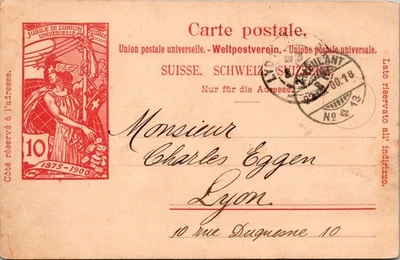 JUBILÉ DE L'UNION
UNIVERSELLE
10
1875-1900
Carte postale,
Union postale universelle. - Weltpostverein. - Unione postale universale.
SUISSE. SCHWEIZ.
Nur für die Adresse.
Côté réservé à l'adresse.
Lato riservato all' indirizzo.
AMBULANT
No 13
Monsieur
Charles Eggen
Lyon.
10 rue Duquesne 10